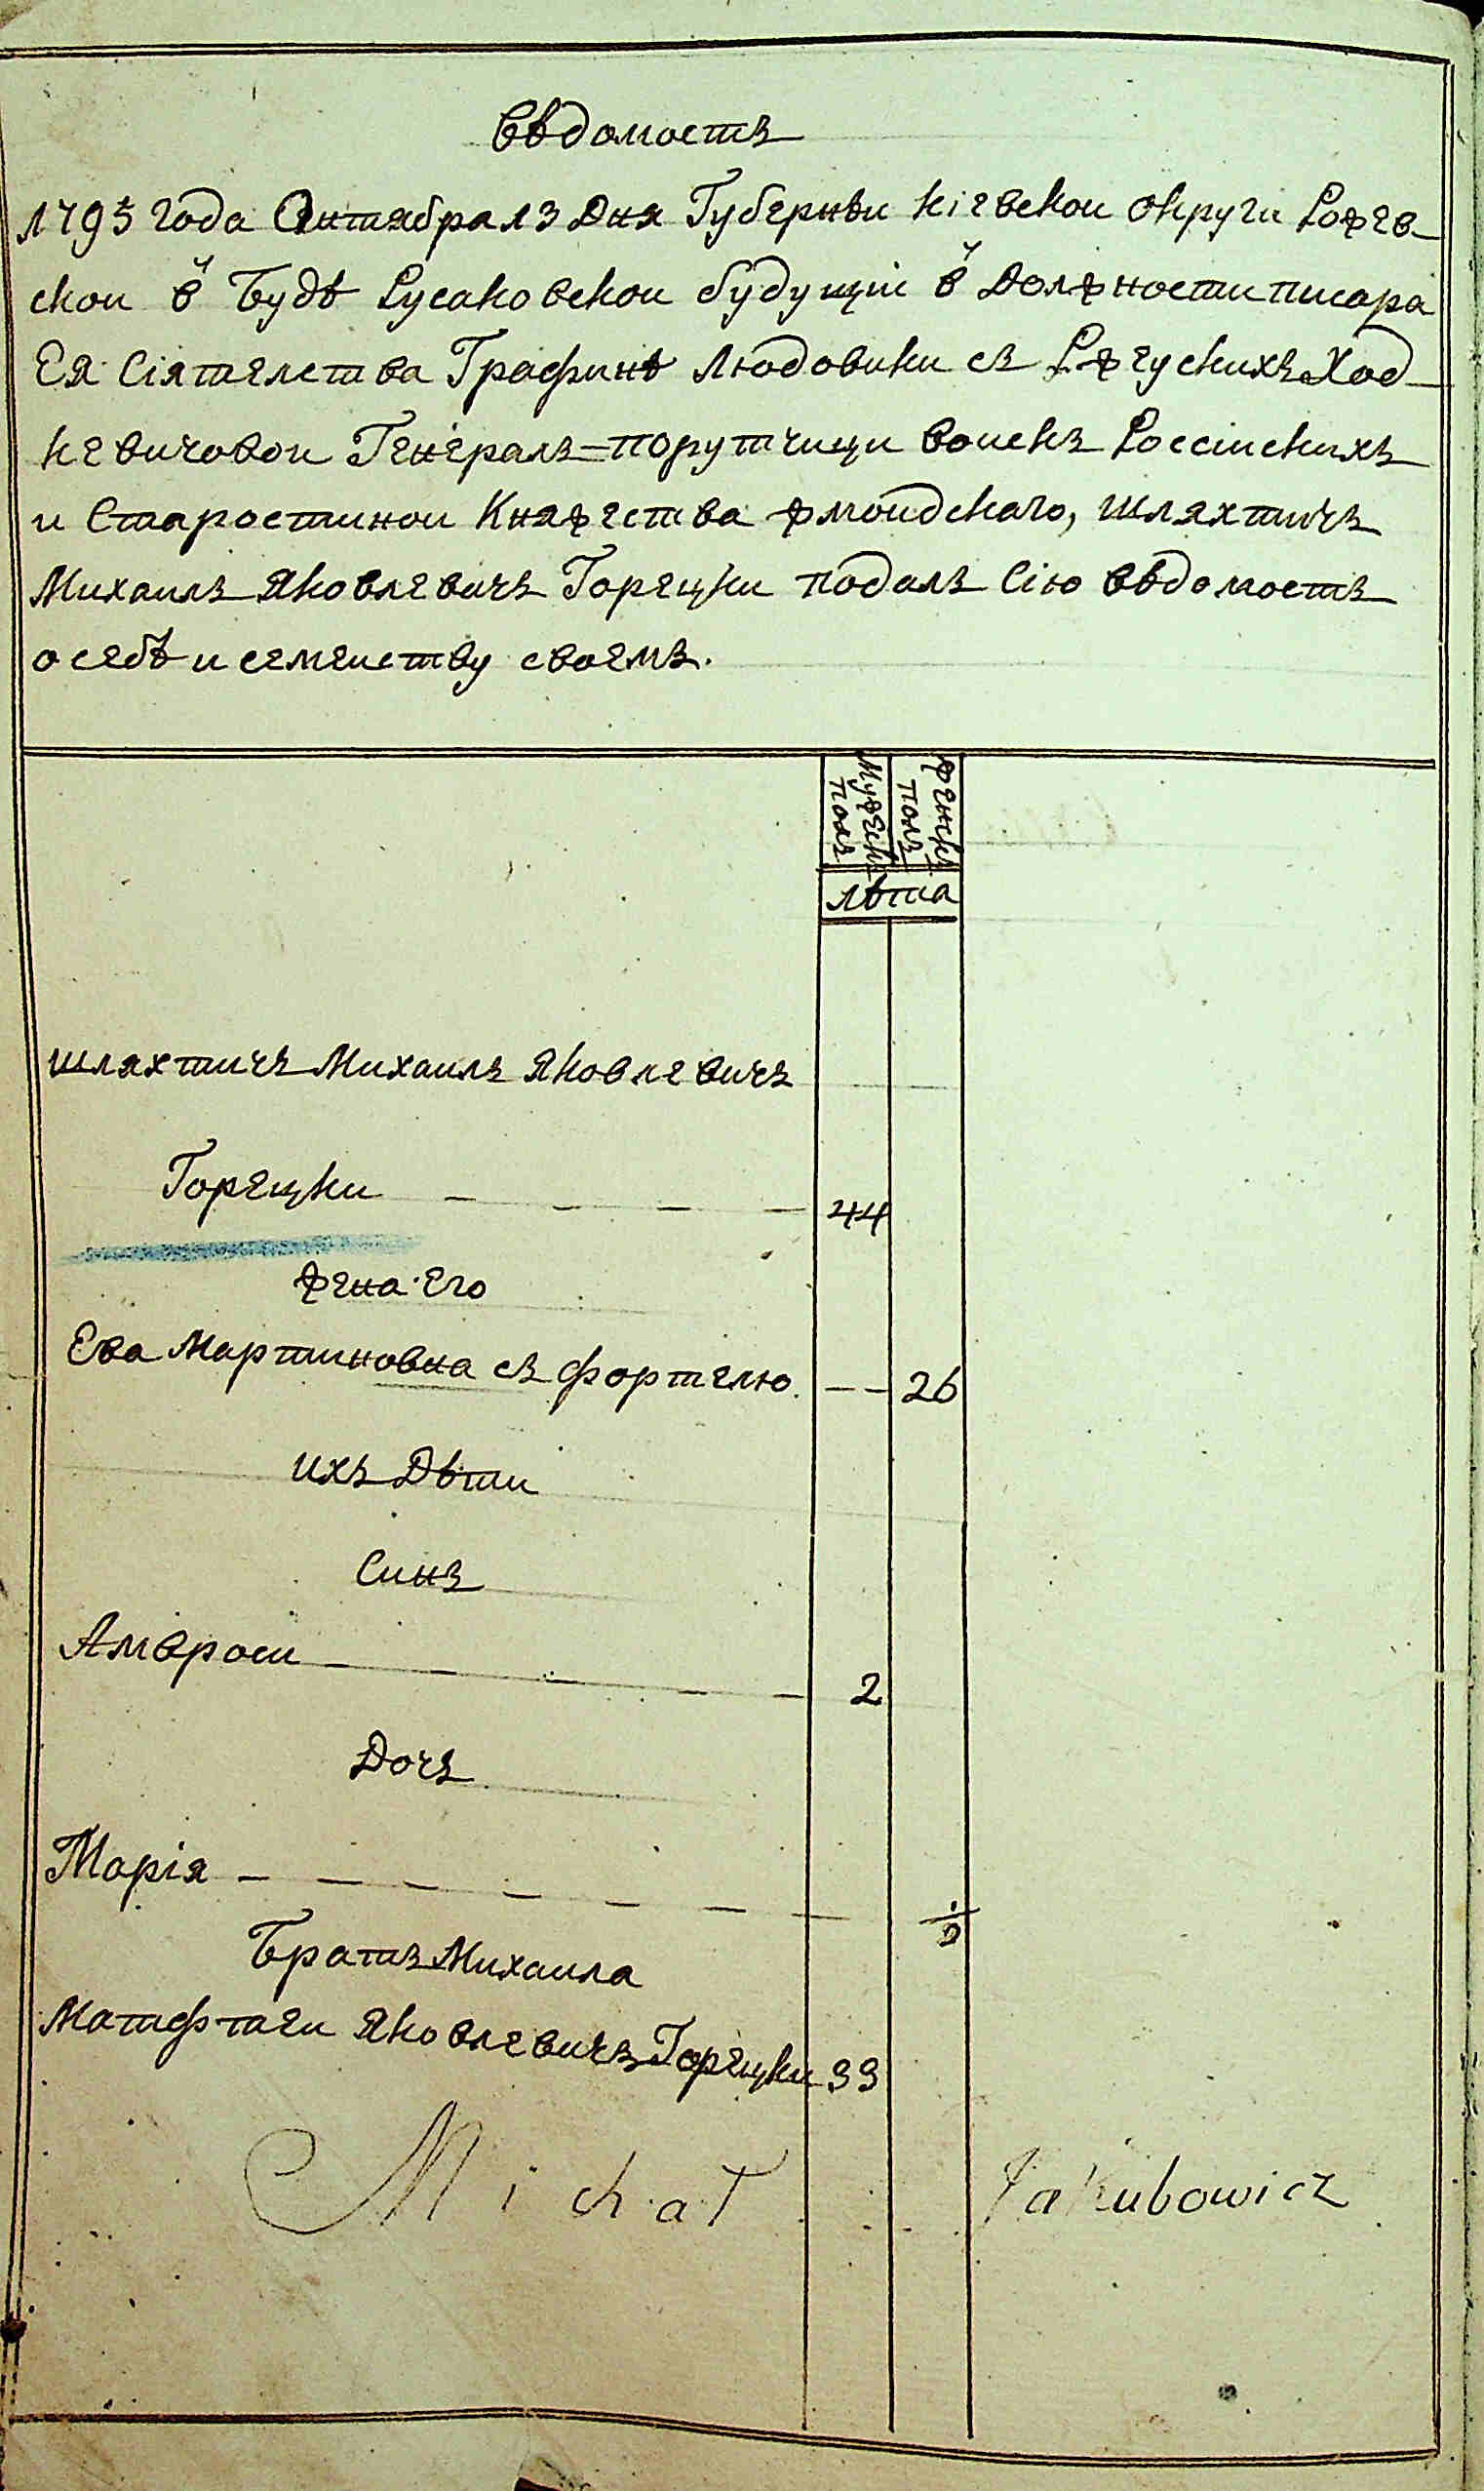 Вѣдомостъ
1795 года Октября 13 Дня Губернѣи Кіевской округи Рожев-
ской в Будѣ Русаковской будущій в Должности писара
Ея Сіятелства Графинѣ Людовики съ Ржеускихъ Ход-
кевичовой Генералъ=порутчици войскъ Россійскихъ
и Старостиной Княжества Жмойдскаго, шляхтичъ
Михаилъ Яковлевичъ Горецки подалъ Сію вѣдомостъ
о себѣ и семейству своемъ.
Мужескъ полъ
Женскъ полъ
лѣта
шляхтичъ Михаилъ Яковлевичъ
Горецки 44
Жена Его
Ева Мартиновна съ Фортелю 26
ихъ Дѣти
Синъ
Амвросй 2
Дочъ
Марія
Братъ Михаила
Яковлевичъ Горецки 33
Michał Jakubowicz